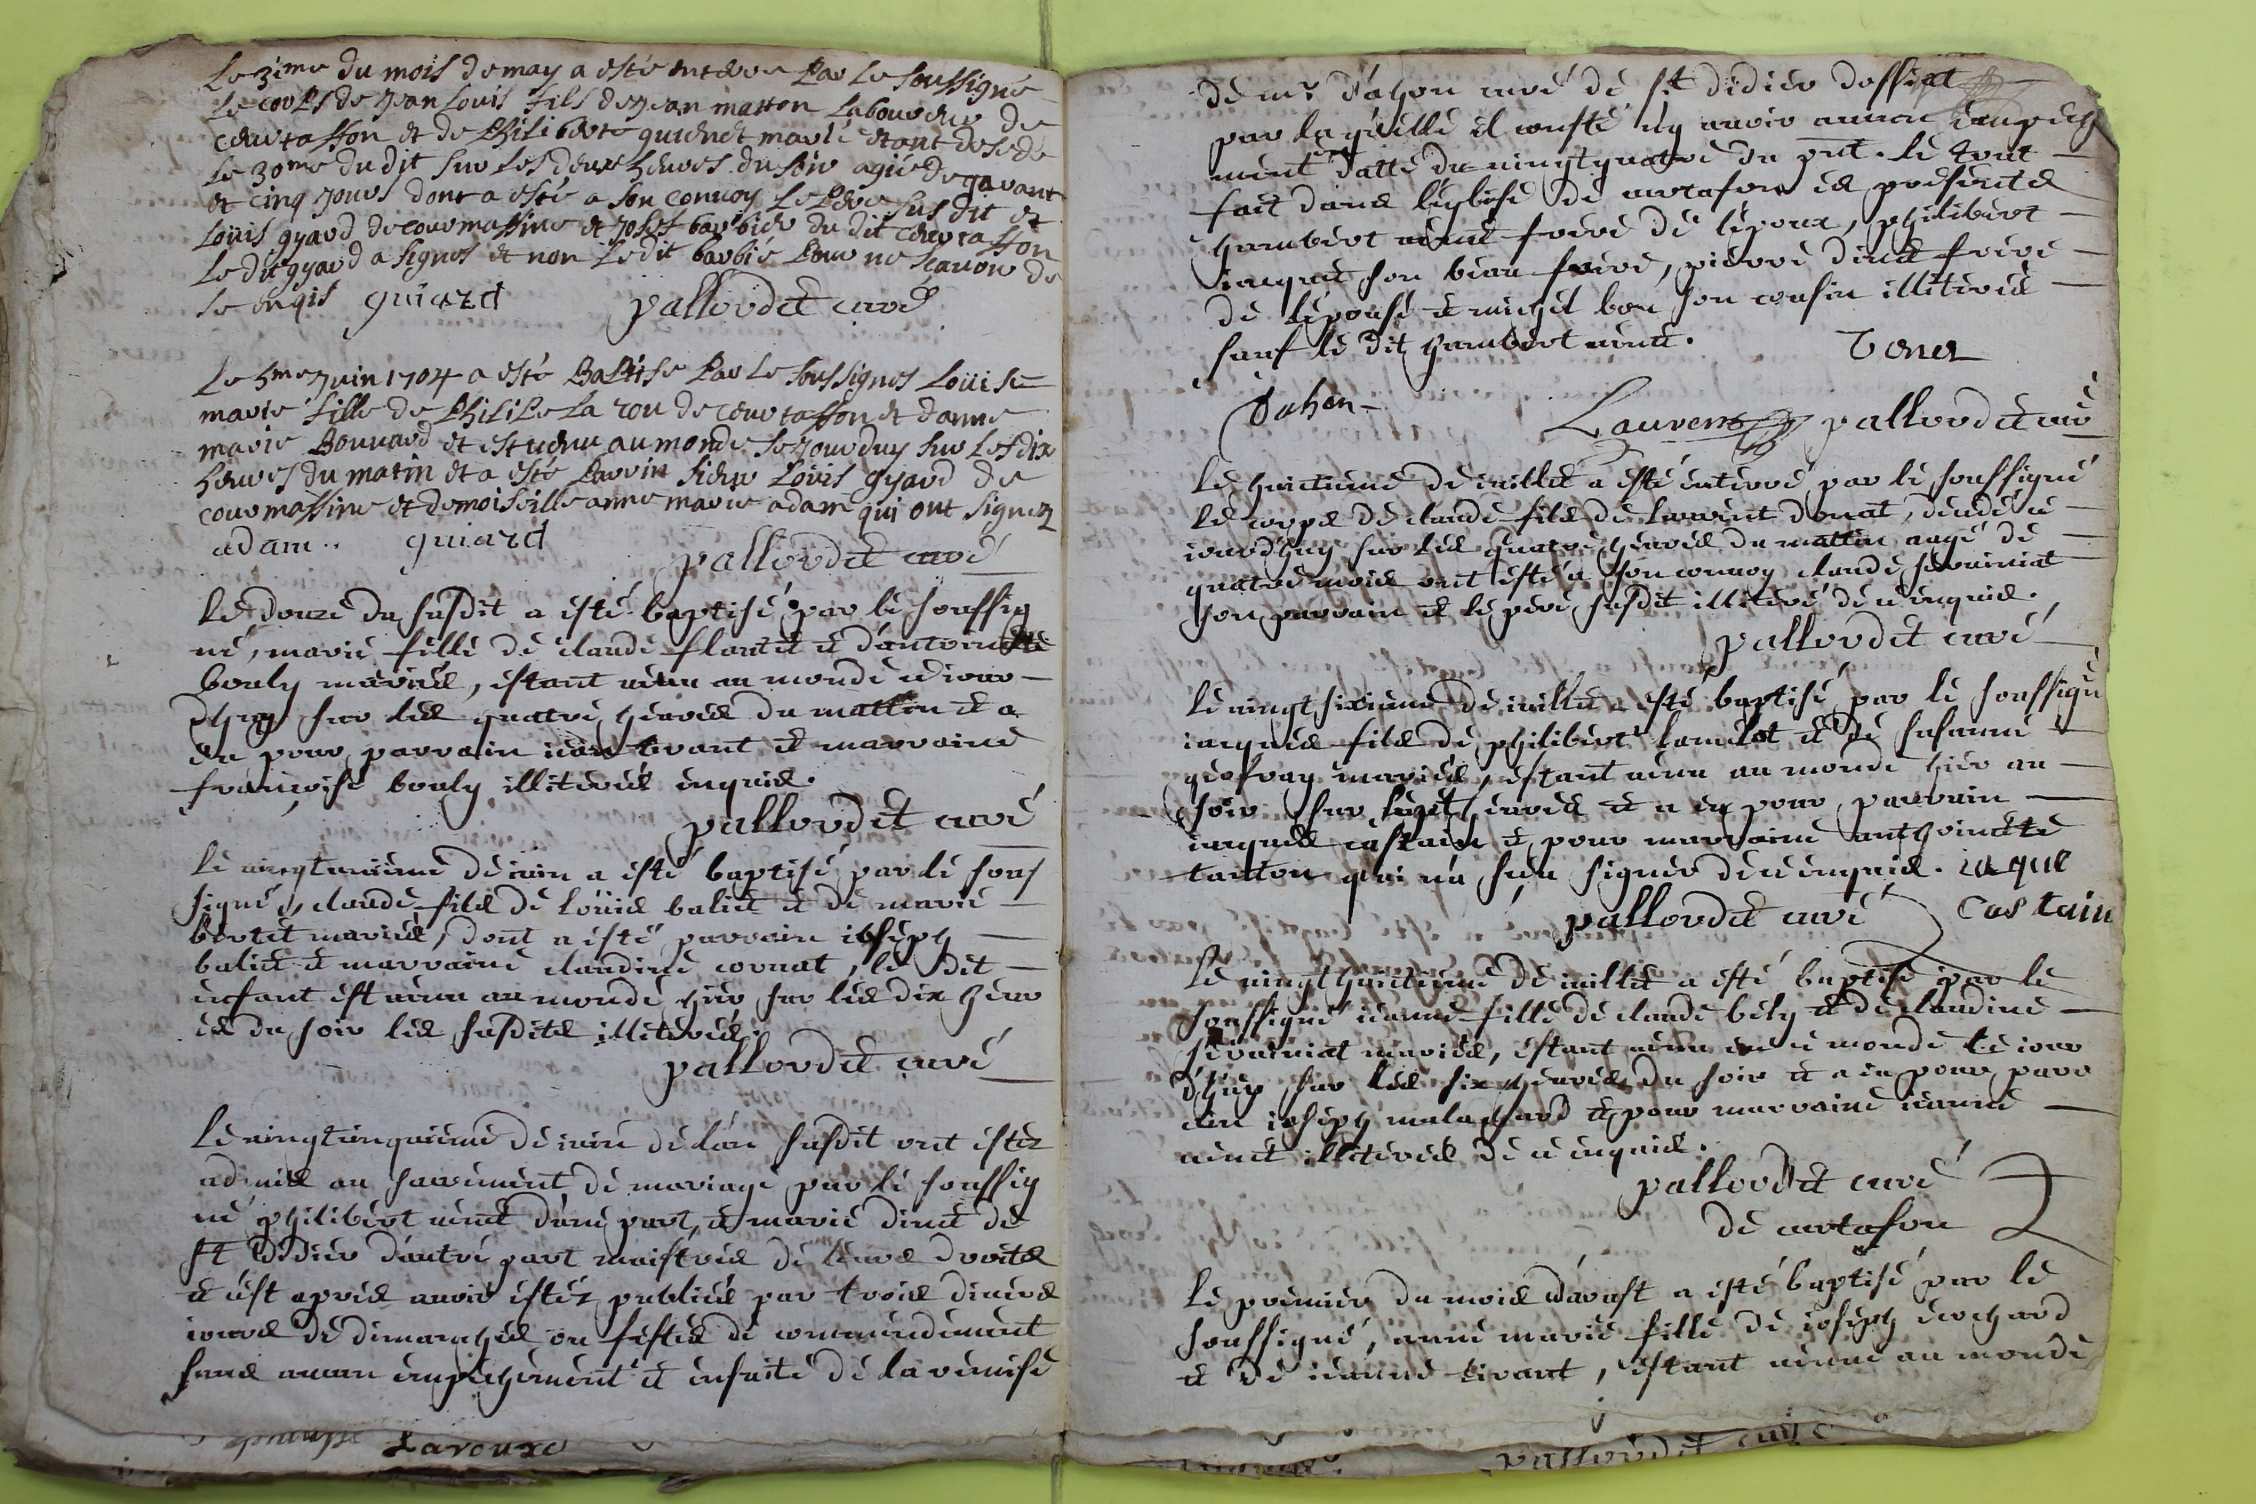 Le 3ime du mois de may a esté enterre Par Le soussigné
Le corps de Jean Louis fils de Jean matton Laboureur de
courtasson et de Philiberte guichet marié etant desedé
Le 30me du dit sur Les deux heures du soir agié de gavant
et cinq Jours dont a esté a son convoy Le Pere susdit et
Loüis gyard de cour massine et Josef barbier du dit courtasson
Le dit gyard a signes et non Le dit barbié Pour ne scavoir de
se enqis guiard pallordet curé
Le 5me Juin 1704 a esté BaPtise Par Le soussignes Loüise
marie fille de PhiliPe La rou de courtasson et danne
marie Bonnard et est uenu au monde se Jourduy sur Les dix
heures du matin et a esté Parrin sieur Loüis gyard de
courmassine et demoiselle anne marie adam qui ont signez
adam guiard
pallordet curé
Le douze du susdit a esté baptisé par le soussig
né, marie fille de claude flantet et dantoinette
bouly mariés, estant uenu au monde ce iour
dhuy sur les quatre heures du mattin et a
eu pour parrain iean tirant et marraine
francoise bouly illiterés enquis.
pallordet curé
Le uingtunieme de iuin a esté baptisé par le sous
signé, claude fils de Loüis baliet et de marie
bertet mariés, dont a esté parrain ioseph
baliet et marraine claudine cornat, le dit
enfant est uenu au monde hier sur les dix heur
es du soir les susdits illiterés.
pallordet curé
Le uingtcinquieme de iuin de lan susdit ont estez
admis au sacrement de mariage par le soussig
né philibert uenet dune part, et marie dinet de
st didier dautre part maistres de leurs droits
et cest apres auoir estéz publiés par trois diuers
iours de dimanches ou festes de commendement
sans aucun empechement et ensuite de la remise
Laroux
de mr dahon curé de st didier dossiat
par laquelle il conste ny auoir aucun empech
ment datté du uingtquatre du pnt. le tout
fait dans leglise de curtafon es presences
hambert uenet frere de lepoux, philibert
iaquet son beau frere, pierre dinet frere
de lepouse et michel bon son cousin illiterés
sauf le dit hambert uenet.
Venet
Dahon
Laurens pallordet curé
Le huictieme de iuillet a esté enterré par le soussigné
le corps de claude fils de laurent donat, decedé ce
iourdhuy sur les quatre heures du mattin aagé de
quatre mois ont esté a son conuoy claude seraniat
son parrain et le pere susdit illiteré de ce enquis.
pallordet curé
Le uingt sixieme de iuillet a esté baptisé par le soussigné
iacques fils de philibert lamelot et de susanne
geofray mariés, estant uenu au monde hier au
soir sur sept heures et a eu pour parrain
iacques castain et pour marraine anthoinette
tanton qui na sceu signer de ce enquis. iaque
castain
pallordet curé
Le uingthuictieme de iuillet a esté baptisé par le
soussigné ieanne fille de claude bely et de claudine
seraniat mariés, estant uenu en ce monde le iour
dhuy sur les six heures du soir et a eu pour parr
ain ioseph malachard et pour marraine ieanne
uenet illiterés de ce enquis.
pallordet curé
de curtafon
Le premier du mois daoust a esté baptisé par le
soussigné, anne marie fille de ioseph écochard
et de ieanne tirant, estant uenue au monde
pallordet curé